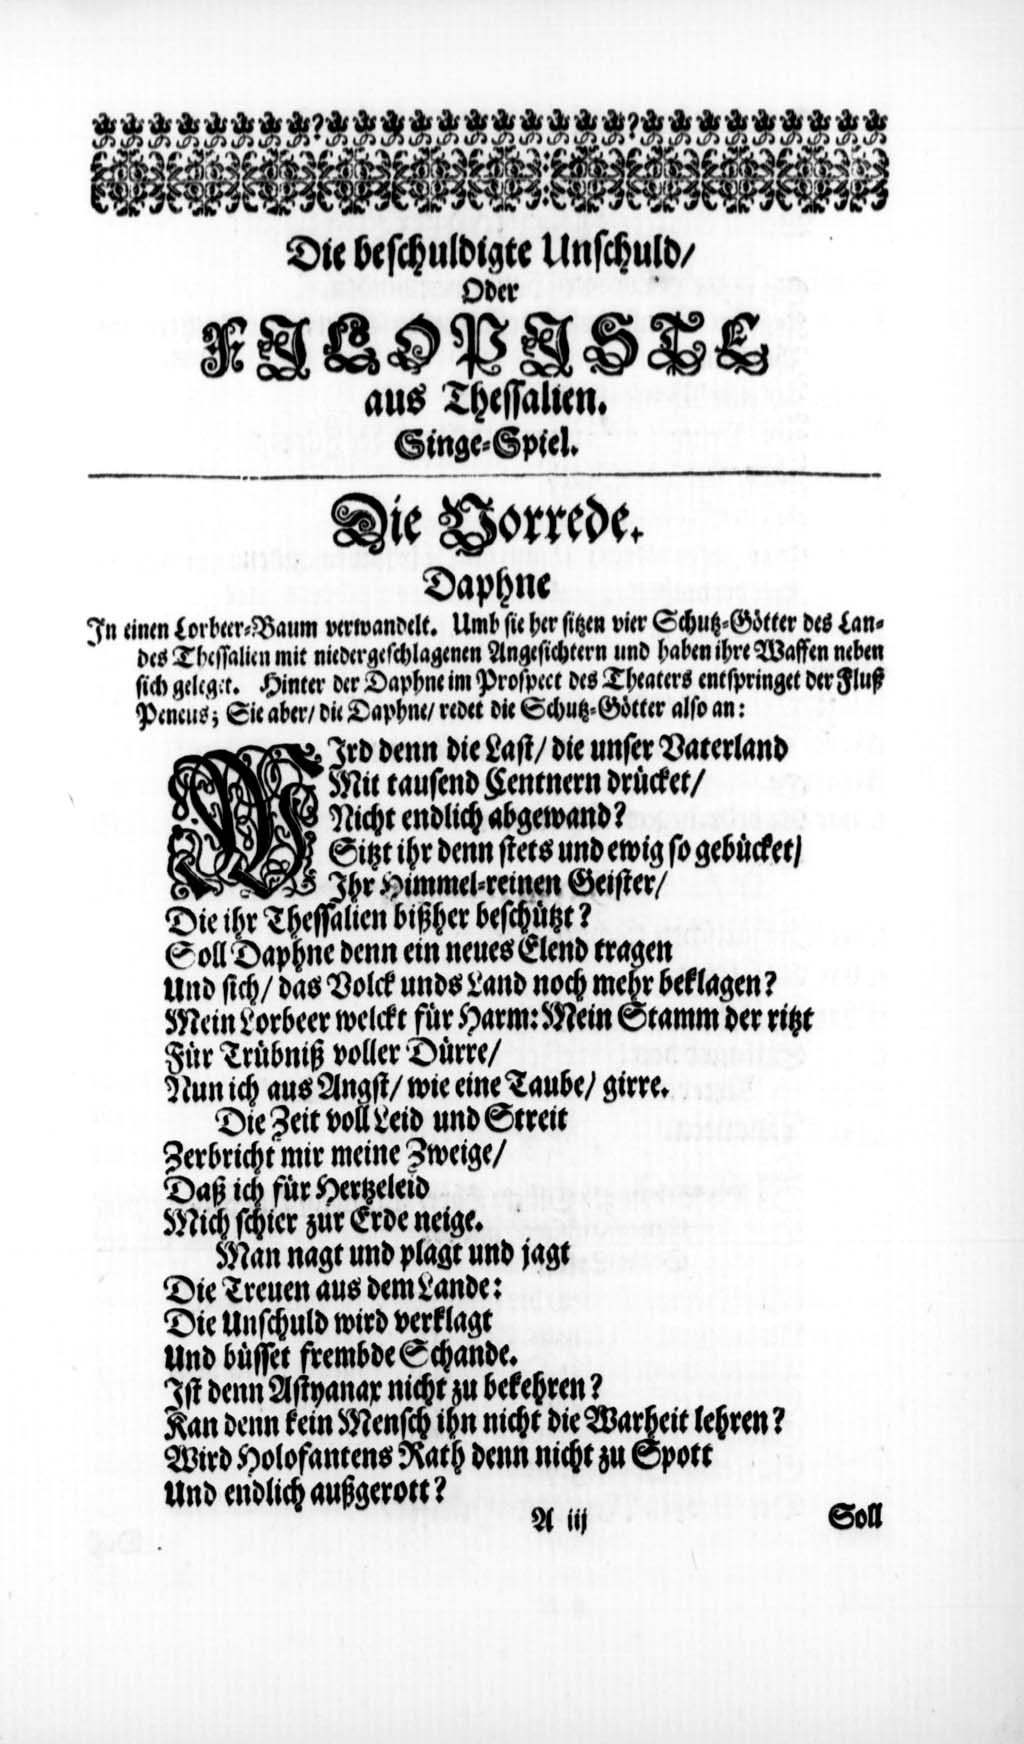 Die beschuldigte Unschuld/
Oder
FILOPISTE
aus Thessalien.
Singe-Spiel.
Die Vorrede.
Daphne
In einen Lorbeer-Baum verwandelt. Umb sie her sitzen vier Schutz-Götter des Lan-
des Thessalien mit niedergeschlagenen Angesichtern und haben ihre Waffen neben
sich geleget. Hinter der Daphne im Prospect des Theaters entspringet der Fluß
Peneus; Sie aber/ die Daphne/ redet die Schutz-Götter also an:
WIrd denn die Last/ die unser Vaterland
Mit tausend Centnern drücket/
Nicht endlich abgewand?
Sitzt ihr denn stets und ewig so gebücket/
Ihr Himmel-reinen Geister/
Die ihr Thessalien bißher beschützt?
Soll Daphne denn ein neues Elend tragen
Und sich/ das Volck unds Land noch mehr beklagen?
Mein Lorbeer welckt für Harm: Mein Stamm der ritzt
Für Trübniß voller Dürre/
Nun ich aus Angst/ wie eine Taube/ girre.
Die Zeit voll Leid und Streit
Zerbricht mir meine Zweige/
Daß ich für Hertzeleid
Mich schier zur Erde neige.
Man nagt und plagt und jagt
Die Treuen aus dem Lande:
Die Unschuld wird verklagt
Und büsset frembde Schande.
Ist denn Astyanax nicht zu bekehren?
Kan denn kein Mensch ihn nicht die Warheit lehren?
Wird Holofantens Rath denn nicht zu Spott
Und endlich außgerott?
A iij Soll